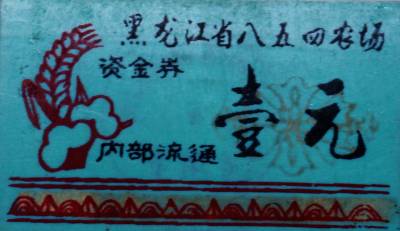 黑龙江省八五四农场
资金券
壹元
内部流通